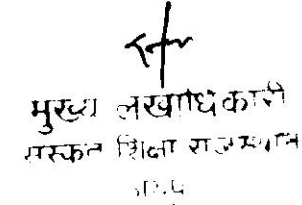 मुख्य लेखाधिकारी
संस्कृत शिक्षा राजस्थान